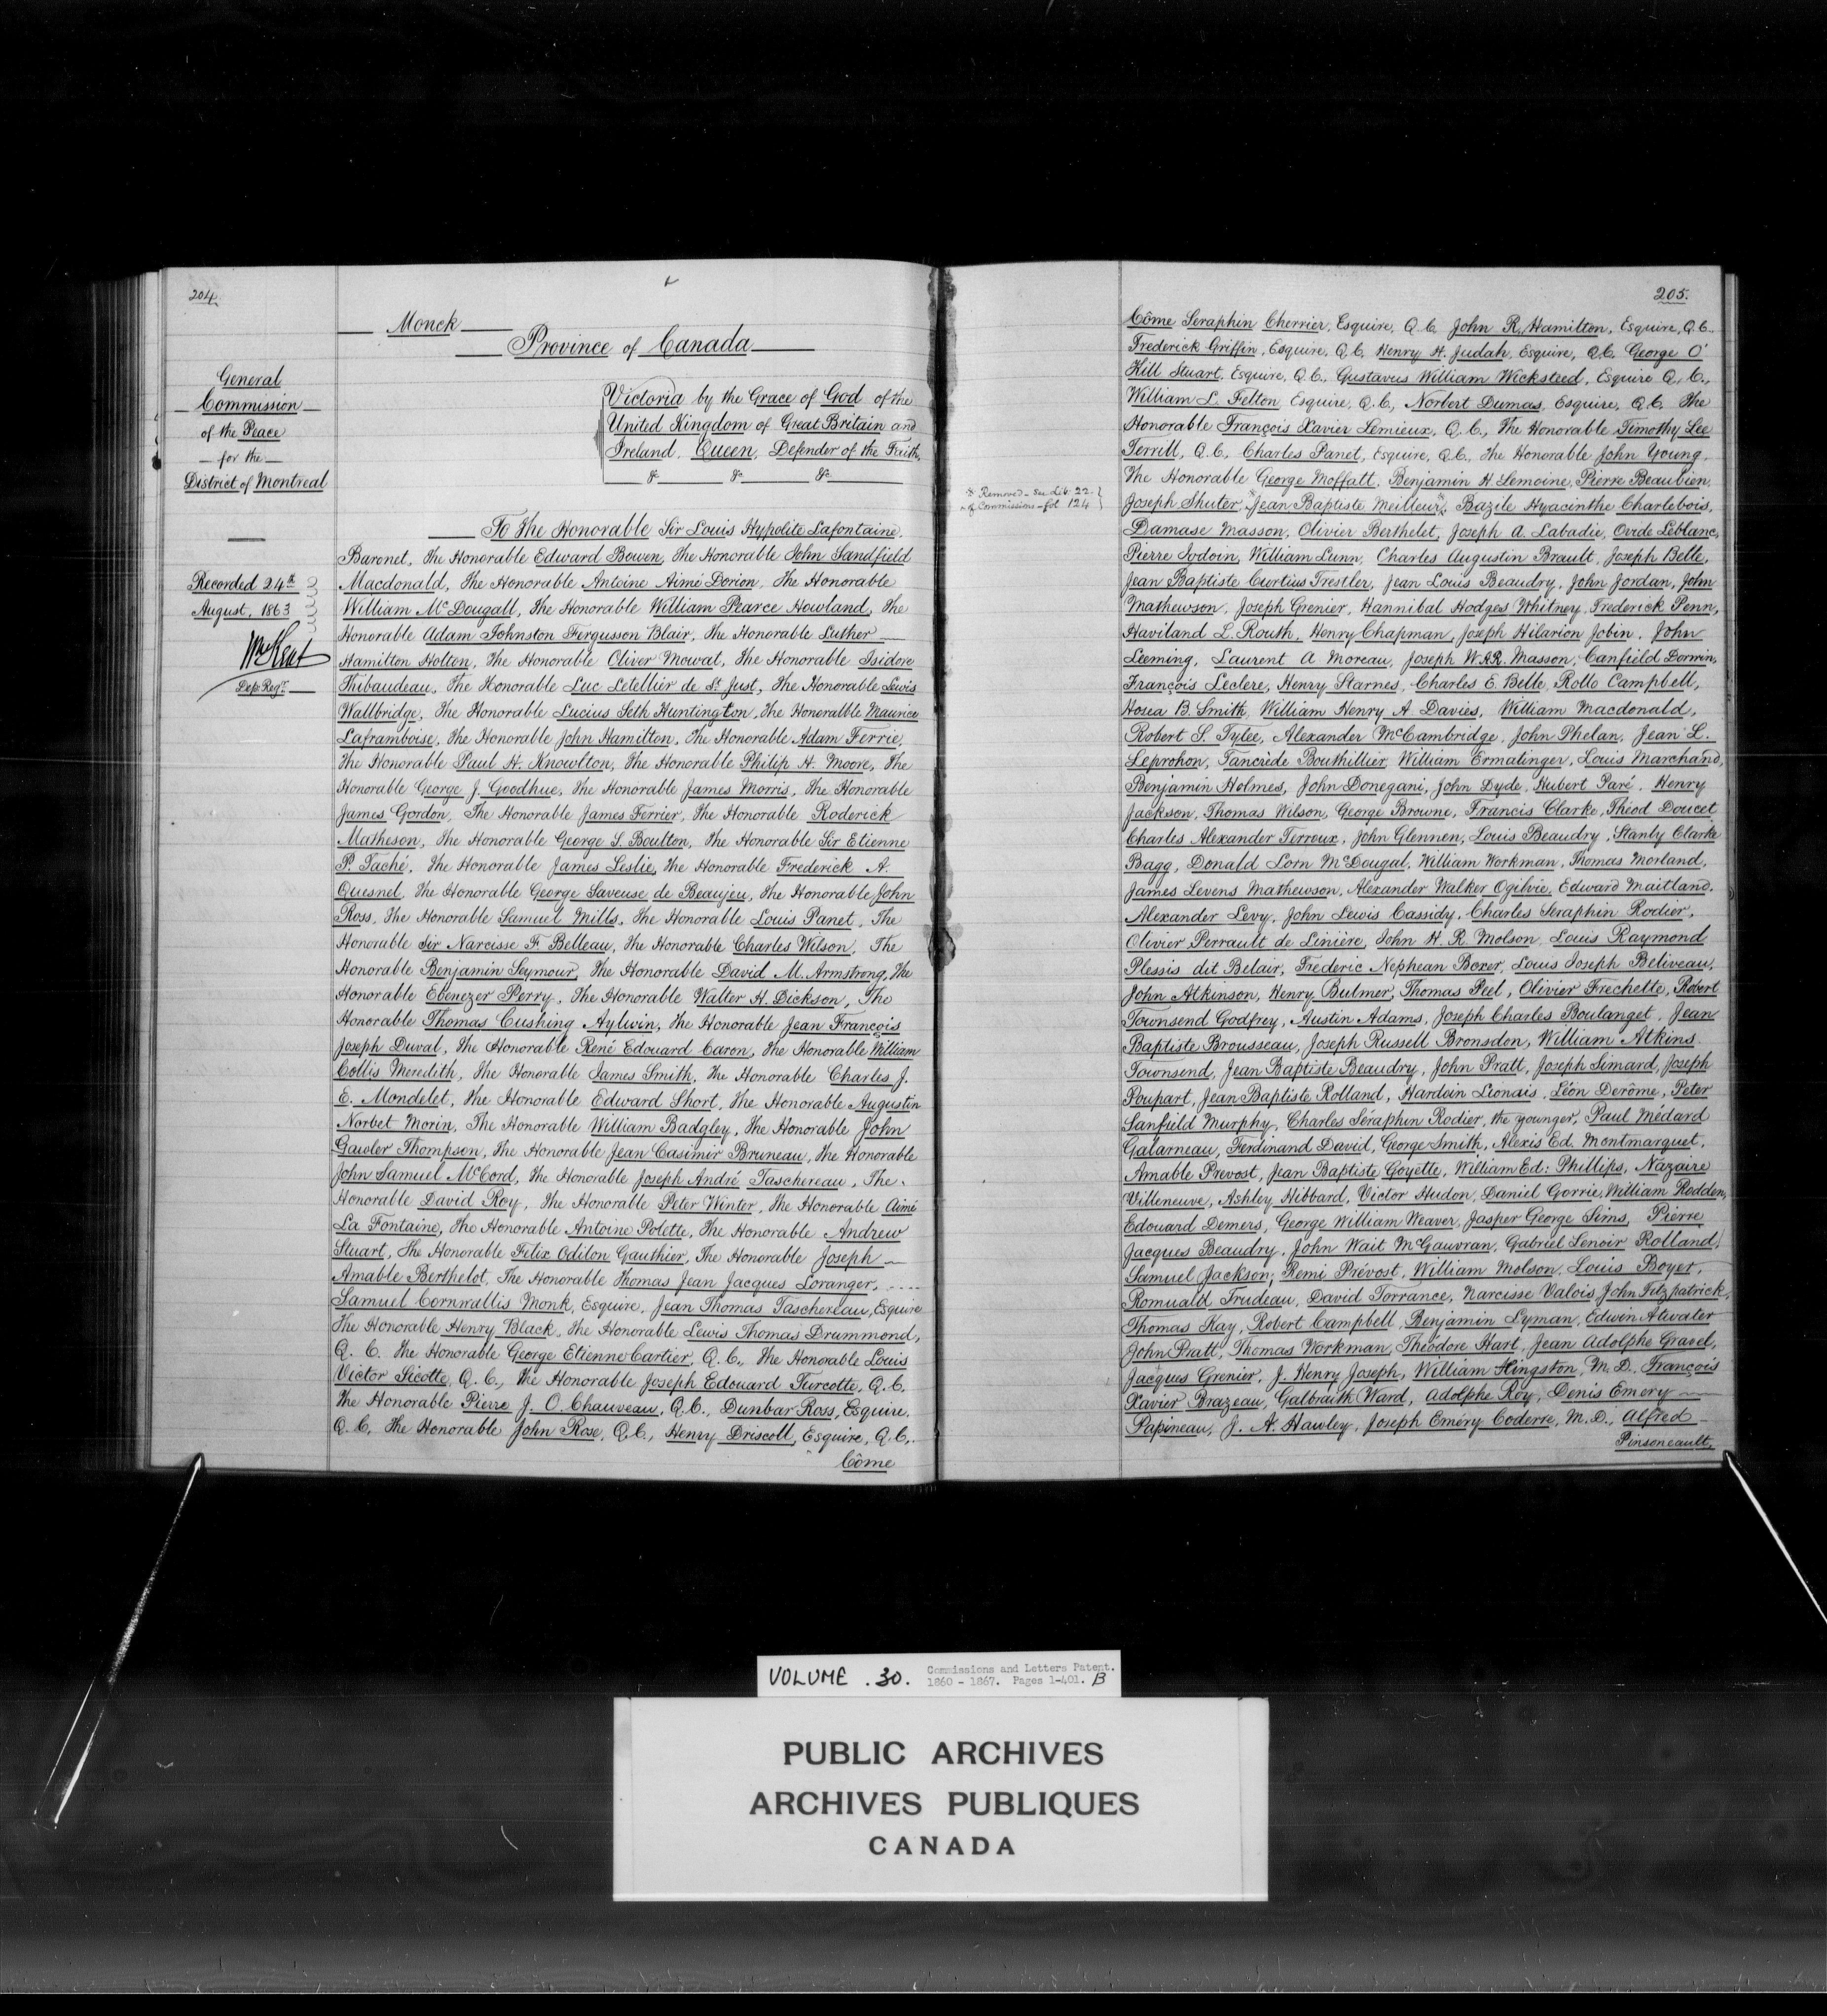 204.
Monck
Province of Canada
General
Commission
of the Peace
for the
District of Montreal
Victoria by the Grace of God of the
United Kingdom of Great Britain and
Ireland, Queen, Defender of the Faith,
&c &c &c
Recorded 24th
August, 1863
Wm Kent
Dep: Regr
To The Honorable Sir Louis Hypolite Lafontaine,
Baronet, The Honorable Edward Bowen, The Honorable John Sandfield
Macdonald, The Honorable Antoine Aimé Dorion, The Honorable
William McDougall, The Honorable William Pearce Howland, The
Honorable Adam Johnston Fergusson Blair, The Honorable Luther
Hamilton Holton, The Honorable Oliver Mowat, The Honorable Isidore
Thibaudeau, The Honorable Luc Letellier de St. Just, The Honorable Lewis
Wallbridge, The Honorable Lucius Seth Huntington, The Honorable Maurice
Laframboise, The Honorable John Hamilton, The Honorable Adam Ferrie,
The Honorable Paul H. Knowlton, The Honorable Philip H. Moore, The
Honorable George J. Goodhue, The Honorable James Morris, The Honorable
James Gordon, The Honorable James Ferrier, The Honorable Roderick
Matheson, The Honorable George S. Boulton, The Honorable Sir Etienne
P. Taché, The Honorable James Leslie, The Honorable Frederick A.
Quesnel, The Honorable George Saveuse de Beaujeu, The Honorable John
Ross, The Honorable Samuel Mills, The Honorable Louis Panet, The
Honorable Sir Narcisse F. Belleau, The Honorable Charles Wilson, The
Honorable Benjamin Seymour, The Honorable David M. Armstrong, The
Honorable Ebenezer Perry, The Honorable Walter H. Dickson, The
Honorable Thomas Cushing Aylwin, The Honorable Jean François
Joseph Duval, The Honorable René Edouard Caron, The Honorable William
Collis Meredith, The Honorable James Smith, The Honorable Charles J.
E. Mondelet, The Honorable Edward Short, The Honorable Augustin
Norbet Morin, The Honorable William Badgley, The Honorable John
Gawler Thompson, The Honorable Jean Casimir Bruneau, The Honorable
John Samuel McCord, The Honorable Joseph André Taschereau, The
Honorable David Roy, The Honorable Peter Winter, The Honorable Aimé
La Fontaine, The Honorable Antoine Polette, The Honorable Andrew
Stuart, The Honorable Felix Odilon Gauthier, The Honorable Joseph
Amable Berthelot, The Honorable Thomas Jean Jacques Loranger,
Samuel Cornwallis Monk, Esquire, Jean Thomas Taschereau, Esquire
The Honorable Henry Black, The Honorable Lewis Thomas Drummond,
Q. C. The Honorable George Etienne Cartier, Q. C., The Honorable Louis
Victor Sicotte, Q. C., The Honorable Joseph Edouard Turcotte, Q. C.
The Honorable Pierre J. O. Chauveau, Q.C., Dunbar Ross, Esquire,
Q. C., The Honorable John Rose, Q.C., Henry Driscoll, Esquire, Q.C.,
Côme
205.
Côme Seraphin Cherrier, Esquire, Q.C. John R. Hamilton, Esquire, Q.C.
Frederick Griffin, Esquire, Q.C. Henry H. Judah, Esquire, Q.C. George O'
Kill Stuart, Esquire, Q.C., Gustavus William Wicksteed, Esquire Q.C.,
William L. Felton, Esquire, Q.C., Norbert Dumas, Esquire, Q.C. The
Honorable François Xavier Lemieux, Q.C., The Honorable Timothy Lee
Terrill, Q.C., Charles Panet, Esquire, Q.C., The Honorable John Young,
The Honorable George Moffatt, Benjamin H. Lemoine, Pierre Beaubien,
* Removed - See Lib. 22
of Commissions - fol 124
Joseph Shuter, *Jean Baptiste Meilleur*, Bazile Hyacinthe Charlebois,
Damase Masson, Olivier Berthelet, Joseph A. Labadie, Ovide Leblanc,
Pierre Jodoin, William Lunn, Charles Augustin Brault, Joseph Belle,
Jean Baptiste Curtius Trestler, Jean Louis Beaudry, John Jordan, John
Mathewson, Joseph Grenier, Hannibal Hodges Whitney, Frederick Penn,
Haviland L. Routh, Henry Chapman, Joseph Hilarion Jobin, John
Leeming, Laurent A Moreau, Joseph W.A.R. Masson, Canfield Dorwin,
François Leclere, Henry Starnes, Charles E. Belle, Rollo Campbell,
Hosea B. Smith, William Henry A Davies, William Macdonald,
Robert S. Tylee, Alexander McCambridge, John Phelan, Jean L.
Leprohon, Tancrède Bouthillier, William Ermatinger, Louis Marchand,
Benjamin Holmes, John Donegani, John Dyde, Hubert Paré, Henry
Jackson, Thomas Wilson, George Browne, Francis Clarke, Théod Doucet
Charles Alexander Terroux, John Glennen, Louis Beaudry, Stanly Clarke
Bagg, Donald Lorn McDougal, William Workman, Thomas Morland,
James Levens Mathewson, Alexander Walker Ogilvie, Edward Maitland,
Alexander Levy, John Lewis Cassidy, Charles Seraphin Rodier,
Olivier Perrault de Linière, John H. R. Molson, Louis Raymond
Plessis dit Belair, Frederic Nephean Boxer, Louis Joseph Beliveau,
John Atkinson, Henry Bulmer, Thomas Peel, Olivier Frechette, Robert
Townsend Godfrey, Austin Adams, Joseph Charles Boulanget, Jean
Baptiste Brousseau, Joseph Russell Bronsdon, William Atkins
Townsend, Jean Baptiste Beaudry, John Pratt, Joseph Simard, Joseph
Poupart, Jean Baptiste Rolland, Hardoin Lionais, Léon Derôme, Peter
Sanfield Murphy, Charles Séraphin Rodier, the younger, Paul Médard
Galarneau, Ferdinand David, George Smith, Alexis Ed. Montmarquet,
Amable Prevost, Jean Baptiste Goyette, William Ed: Phillips, Nazaire
Villeneuve, Ashley Hibbard, Victor Hudon, Daniel Gorrie, William Rodden,
Edouard Demers, George William Weaver, Jasper George Sims, Pierre
Jacques Beaudry, John Wait McGauvran, Gabriel Lenoir Rolland,
Samuel Jackson, Remi Prévost, William Molson, Louis Boyer,
Romuald Trudeau, David Torrance, Narcisse Valois, John Fitzpatrick,
Thomas Kay, Robert Campbell, Benjamin Lyman, Edwin Atwater
John Pratt, Thomas Workman, Théodore Hart, Jean Adolphe Gravel,
Jacques Grenier, J. Henry Joseph, William Hingston, M.D. François
Xavier Brazeau, Galbraith Ward, Adolphe Roy, Denis Emery
Papineau, J. A. Hawley, Joseph Eméry Coderre, M.D., Alfred
Pinsoneault,
VOLUME . 30. Commissions and Letters Patent.
1860 - 1867. Pages 1-401. B
PUBLIC ARCHIVES
ARCHIVES PUBLIQUES
CANADA